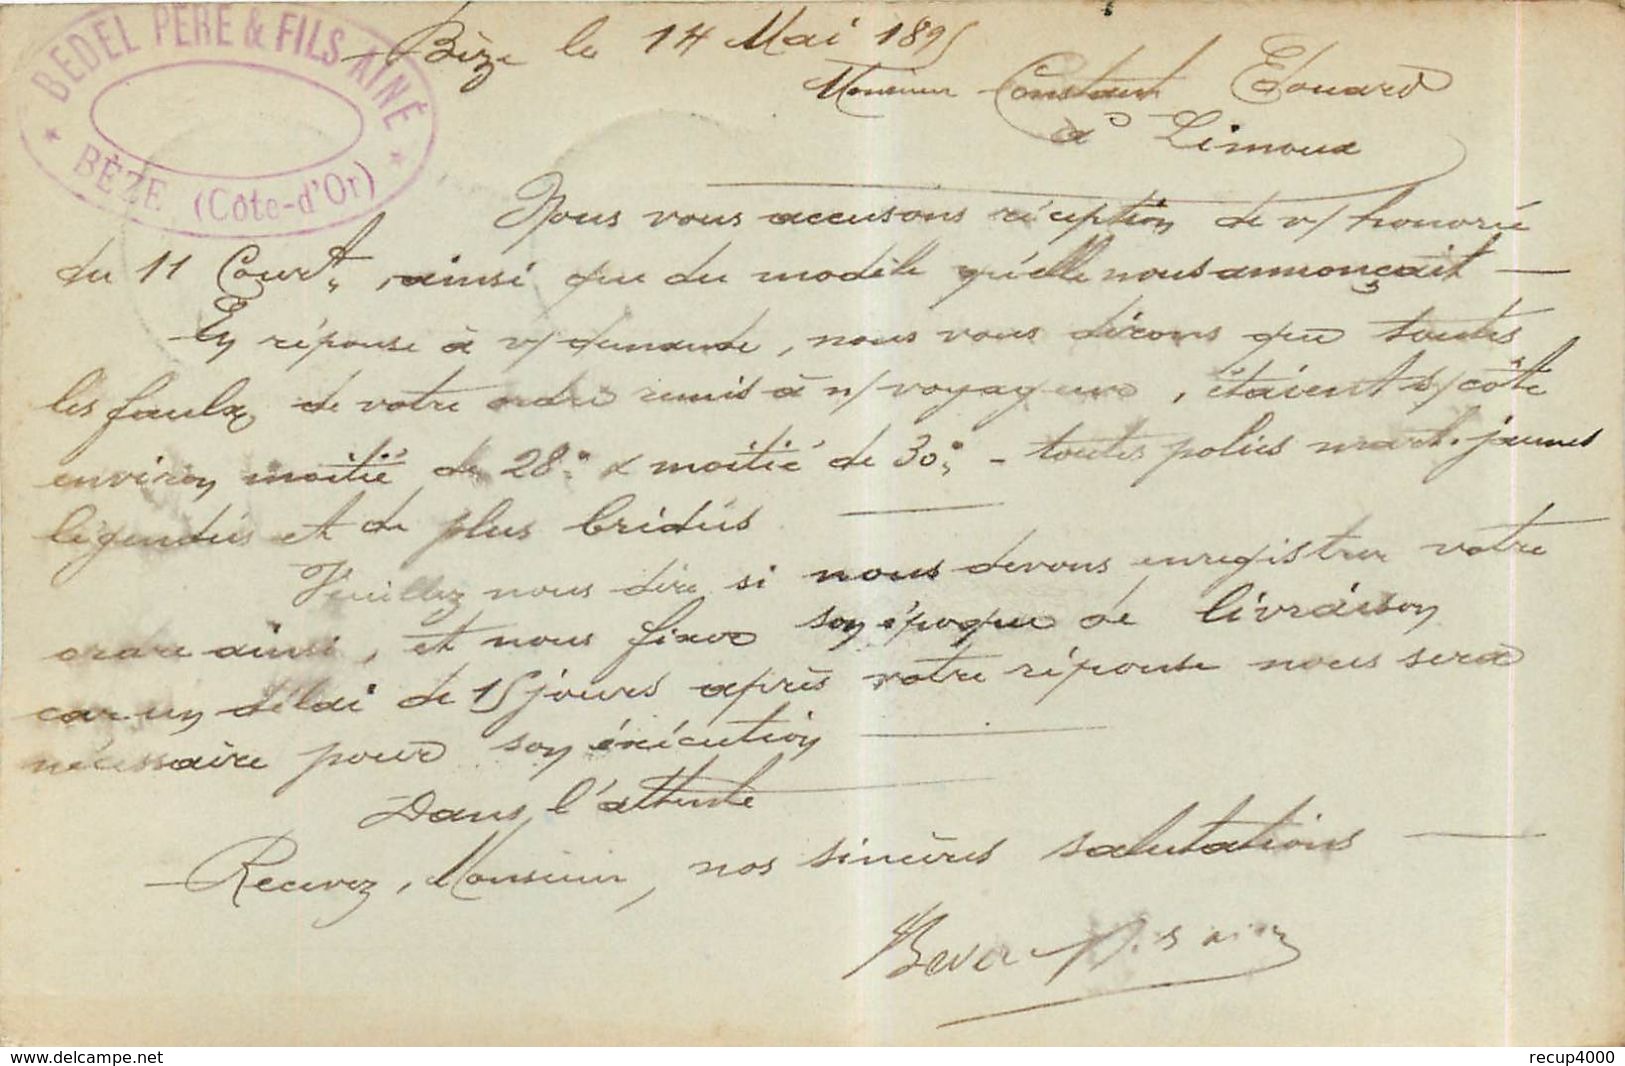 BEDEL PÈRE & FILS AINÉ
* BÈZE (Côte-d'Or) *
Bèze le 14 Mai 1895
Monsieur Constant Edouard
à Limoux
Nous vous accusons réception de v/ honorée
du 11 Court, ainsi que du modèle qu'elle nous annonçait —
En réponse à v/ demande, nous vous dirons que toutes
les faulx de votre ordre remis à n/ voyageur, étaient s/ côte
environ moitié de 28° & moitié de 30° – toutes polies jaunes
légendés et de plus bridés —
Veuillez nous dire si nous devons enregistrer votre
ordre ainsi, et nous fixer son époque de livraison
car un délai de 15 jours après votre réponse nous sera
nécessaire pour son éxécution —
Dans l'attente
Recevez, Monsieur, nos sincères salutations —
www.delcampe.net
recup4000